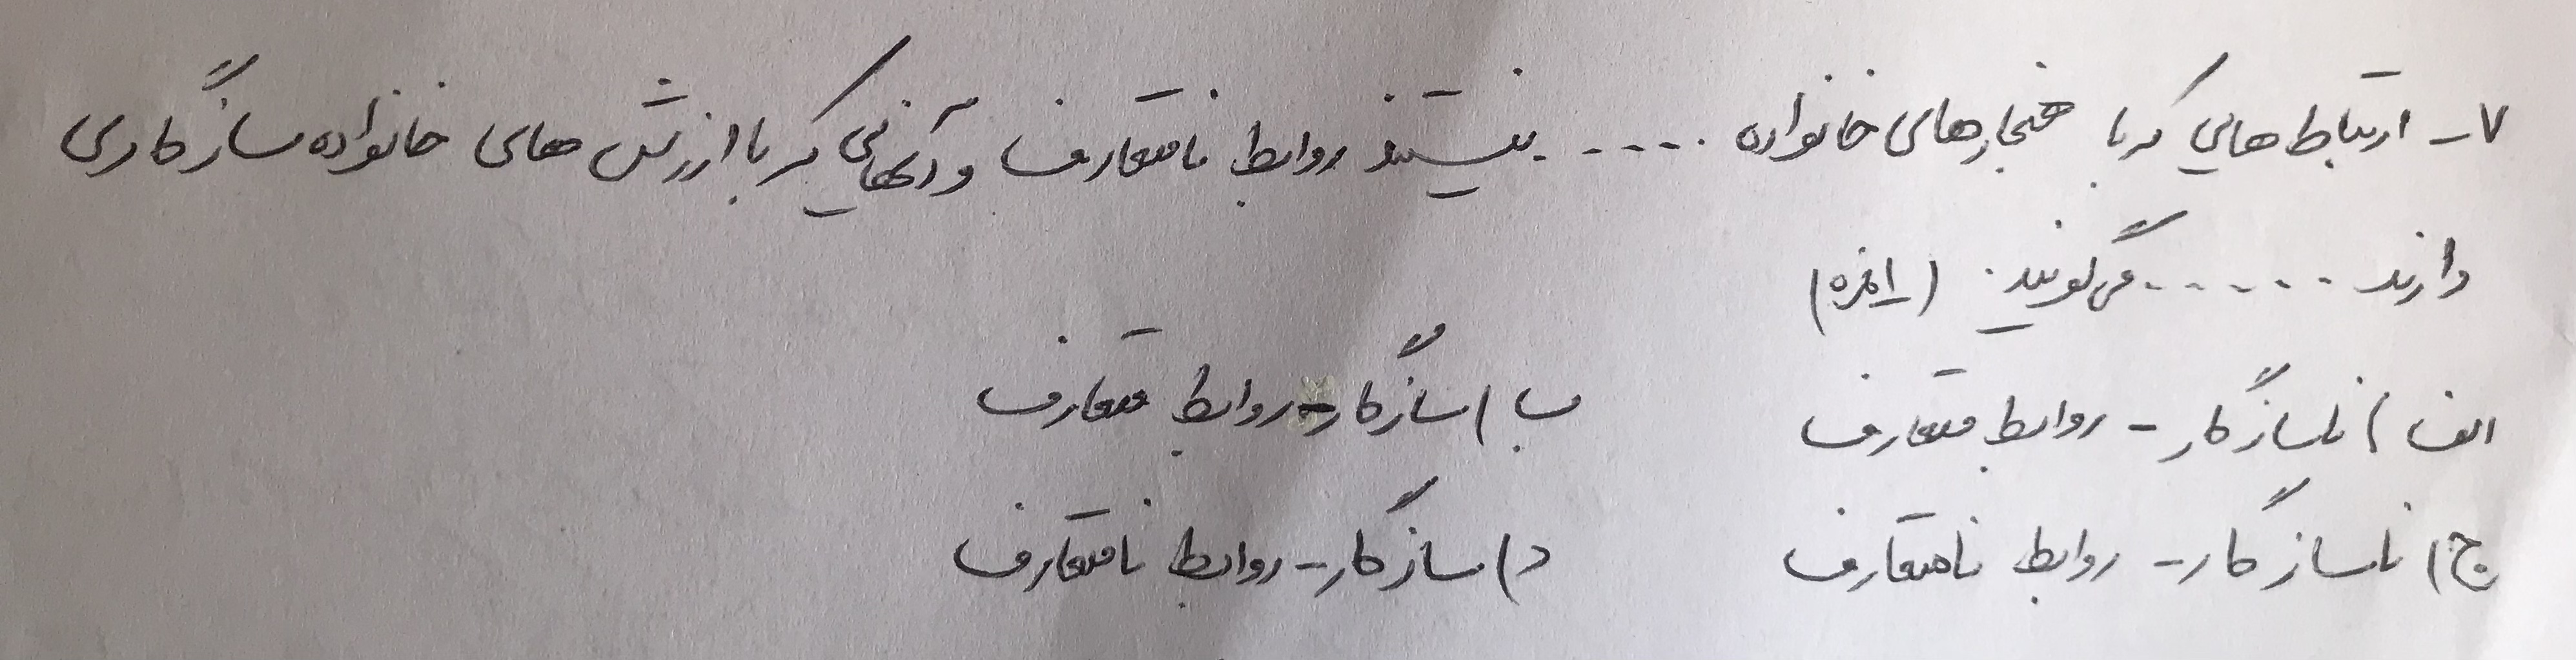 ۷- ارتباط هایی که با هنجارهای خانواده ...... نیستند روابط نامتعارف و آنهایی که با ارزش های خانواده سازگاری
دارند ...... می گویند. (۱نمره)
الف) ناسازگار - روابط متعارف ب) سازگار - روابط متعارف
ج) ناسازگار - روابط نامتعارف د) سازگار - روابط نامتعارف